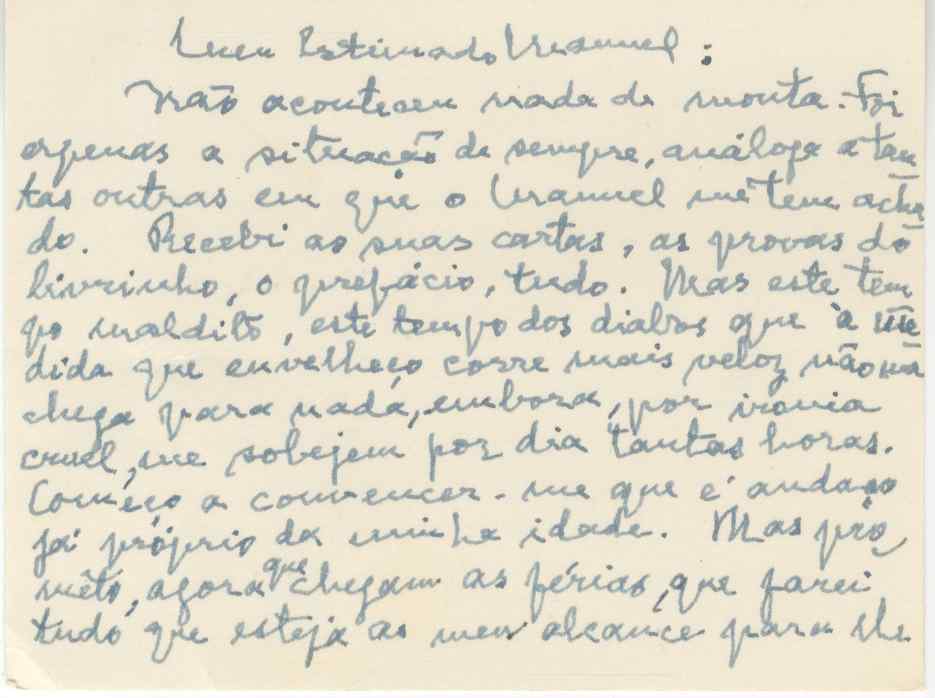 Meu Estimado Manuel:
Não aconteceu nada de monta. Foi
apenas a situação de sempre, análoga a tan
tas outras em que o Manuel me tem acha
do. Recebi as suas cartas, as provas do
livrinho, o prefácio, tudo. Mas este tem
po maldito, este tempo dos diabos que à me
dida que envelheço corre mais veloz não me
chega para nada, embora, por ironia
cruel, me sobejem por dia tantas horas.
Começo a convencer-me que é andaço
já próprio da minha idade. Mas pro
meto, agora que chegam as férias, que farei
tudo que esteja ao meu alcance para lhe